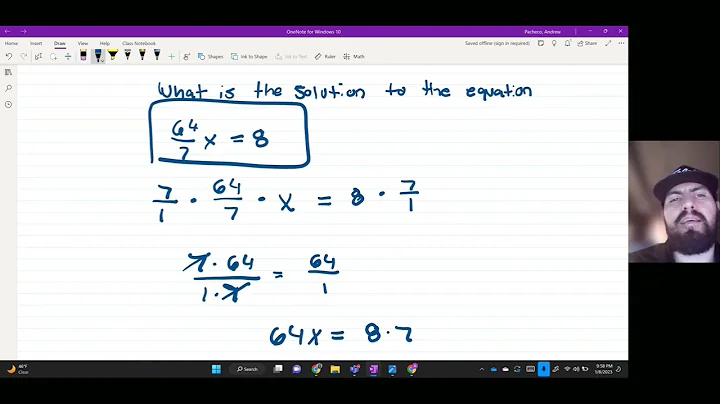 OneNote for Windows 10
Pacheco, Andrew
Home Insert Draw View Help Class Notebook
Saved offline (sign in required)
Share
Shapes Ink to Shape Ink to Text Ruler Math
What is the solution to the equation
64/7 x = 8
7/1 · 64/7 · x = 8 · 7/1
7 · 64 / 1 · 7 = 64/1
64x = 8 · 7
46°F
Clear
Search
9:58 PM
1/8/2023